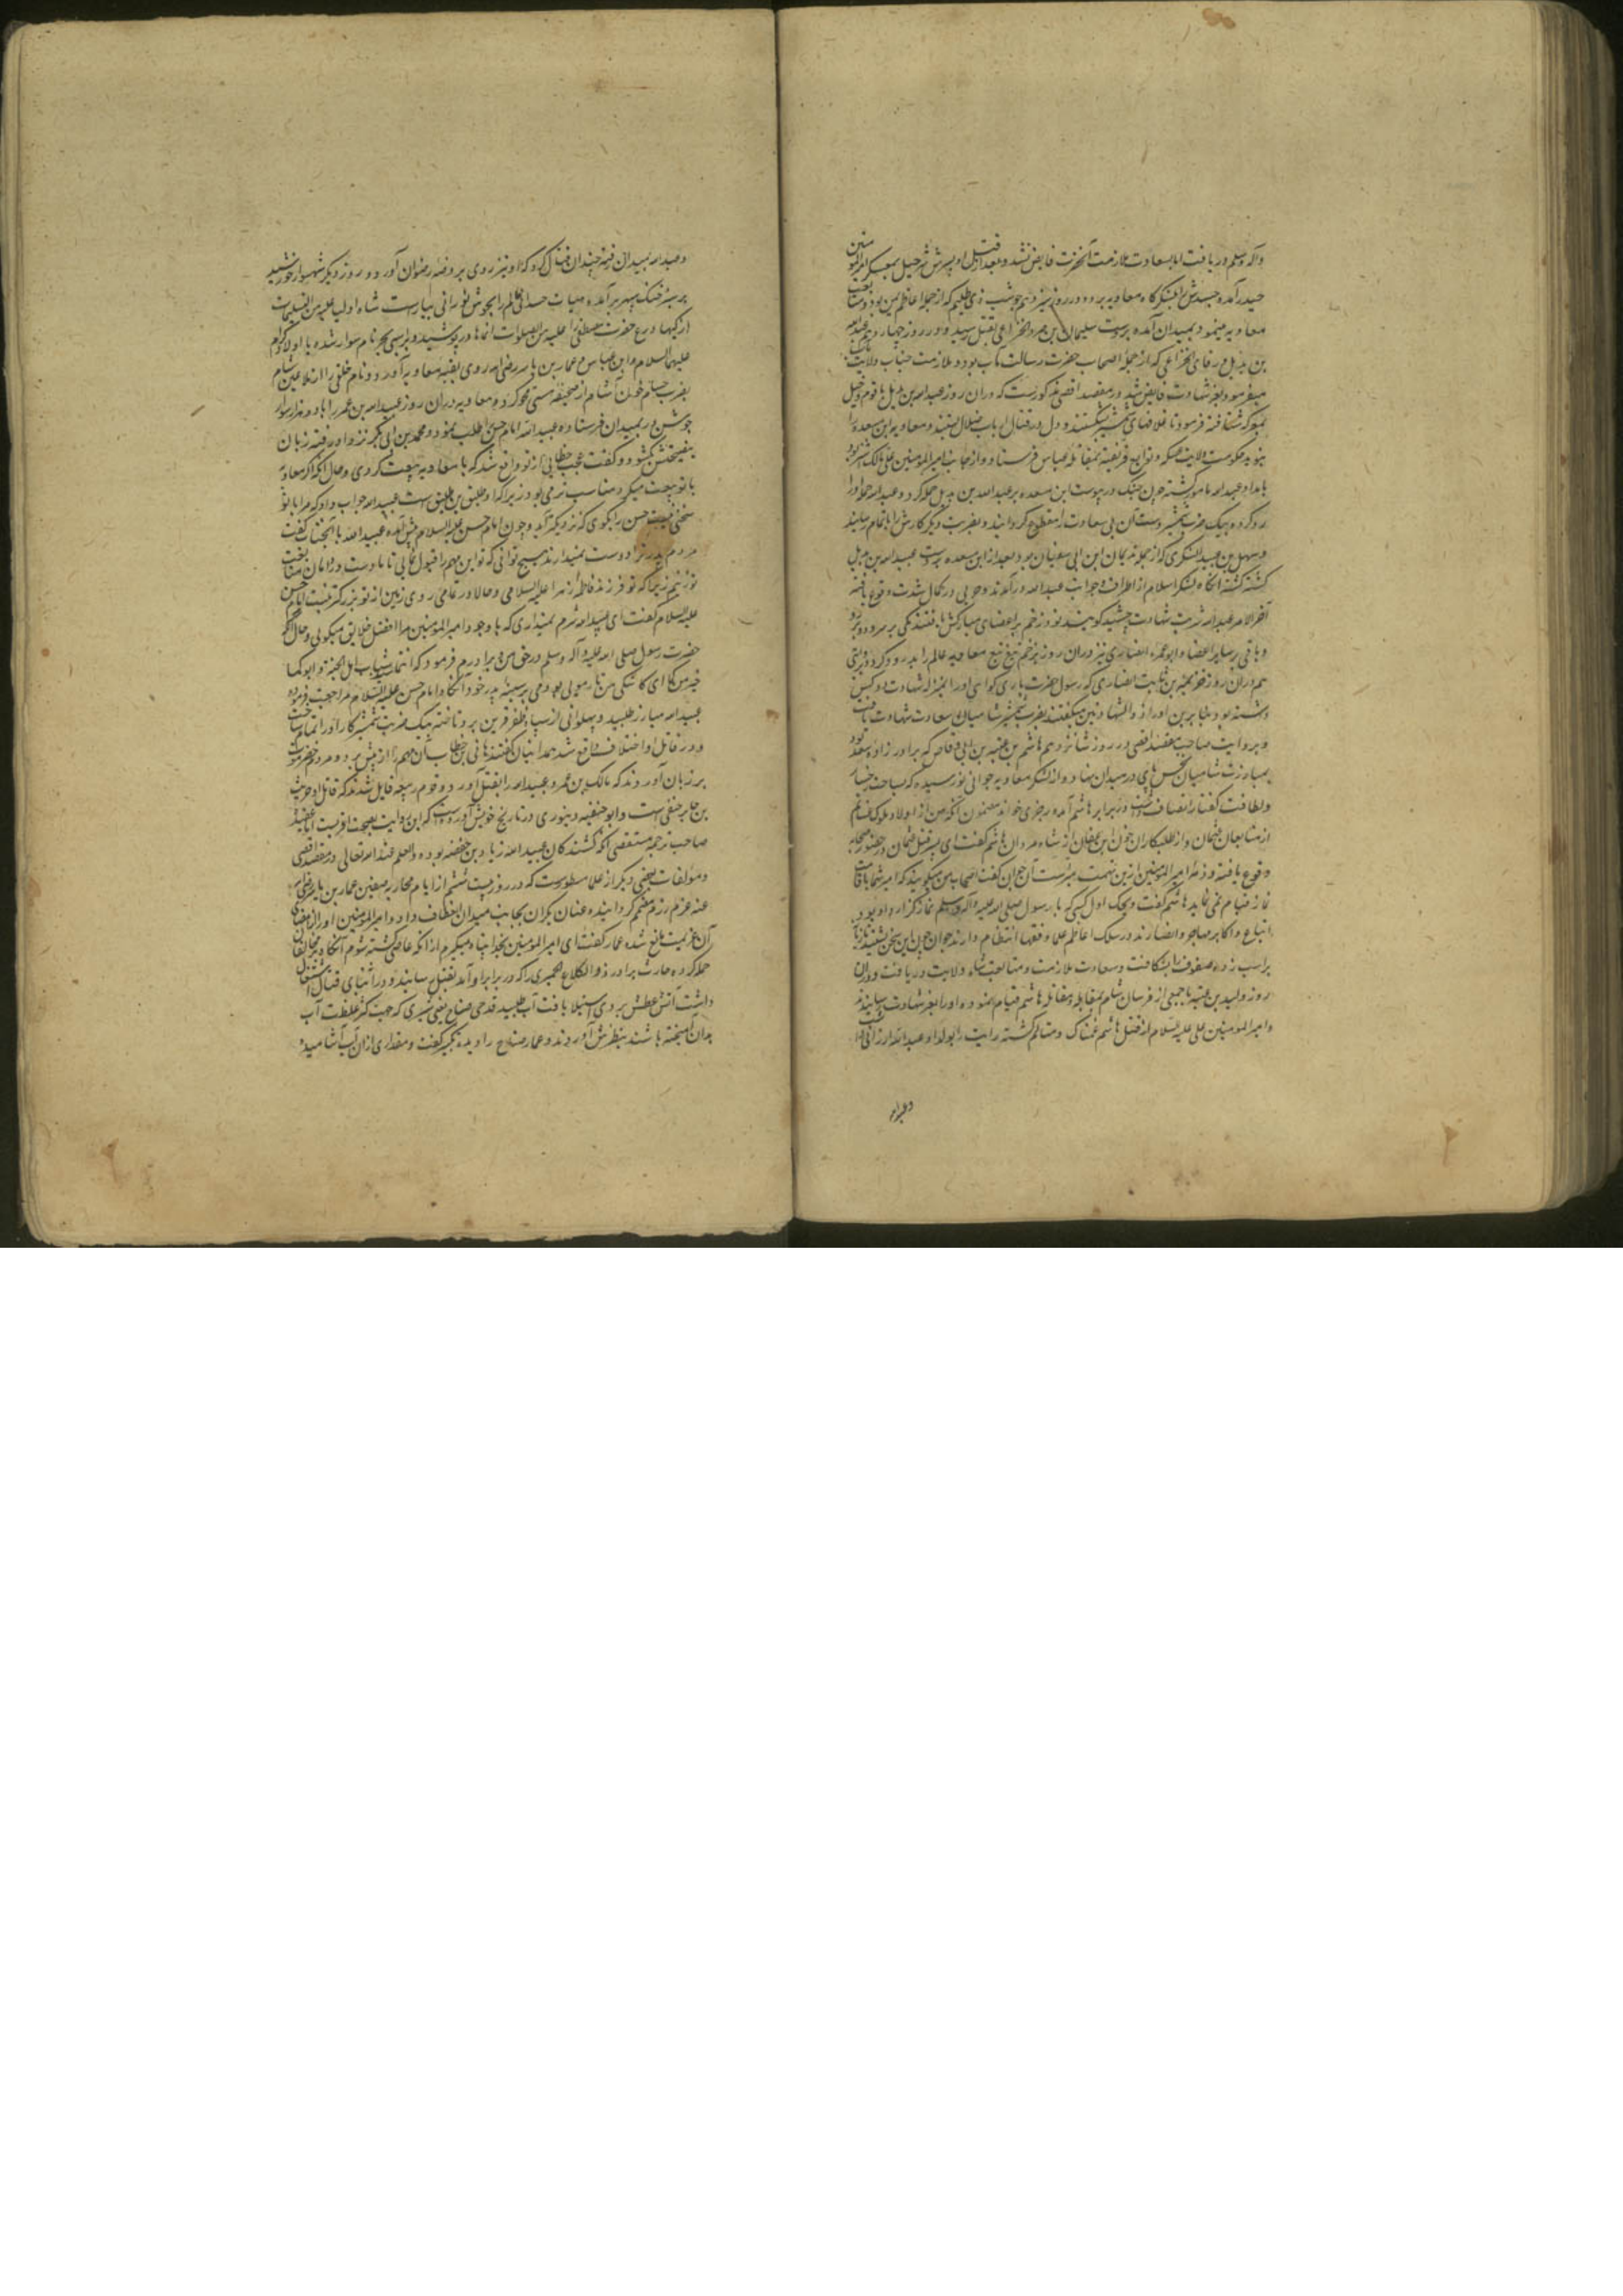 وآله وسلم دریافت اما بسعادت ملازمت آنحضرت فایض نشد و بعد از قتل او پسرش شرحبیل بمعسکر امیرالمومنین
حیدر آمده جسدش را بلشکرگاه معاویه برد و در روز سیزدهم حوشب ذی ظلیم که از جمله اعاظم یمن بود و متابعت
معاویه مینمود بمیدان آمده بردست سلیمان بن صرد الخزاعی بقتل رسید و در روز چهاردهم عبدالله
بن بدیل ورقای الخزاعی که از جمله اصحاب حضرت رسالت مآب بود و ملازمت جناب ولایت مآب
میفرمود بعز شهادت فایض شد در مقصد اقصی مذکورست که دران روز عبدالله بن بدیل با قوم و خیل
بمعرکه شتافته فرمود تا غلافهای شمشیر بشکستند و دل در قتال ارباب ضلال بستند و معاویه ابن مسعده را
بامداد عبدالله مامور گشته چون جنگ در پیوست ابن مسعده بر عبدالله بن بدیل حمله کرد و عبدالله حمله او را
رد کرده و بیک ضرب شمشیر دست آن بی سعادت را مقطوع گردانید و بضربت دیگر کارش را باتمام رسانید
کشته گشته آنگاه لشکر اسلام از اطراف و جوانب عبدالله درآمدند و حربی در کمال شدت وقوع یافته
آخر الامر عبدالله شربت شهادت چشید گویند نود زخم بر اعضای مبارکش یافتند یکی بر سر و دو بر رو
و باقی بر سایر اعضاء و ابوعمره انصاری نیز دران روز بزخم تیغ تبع معاویه عالم را بدرود کرد و بروایتی
هم دران روز خزیمة بن ثابت انصاری که رسول حضرت باری گواهی او را بمنزله شهادت دو کس
داشته بود و بنابرین او را ذوالشهادتین میگفتند بضرب شمشیر شامیان سعادت شهادت یافت
و بروایت صاحب مقصد اقصی در روز شانزدهم هاشم بن عتبه بن ابی وقاص که برادر زاده سعد بود
بمبارزت شامیان نحس پای در میدان نهاد و از لشکر معاویه جوانی نورسیده که بصباحت رخسار
ولطافت گفتار اتصاف داشت در برابر هاشم آمده رجزی خواند مضمون آنکه من از اولاد ملوک غسانم
از متابعان عثمان و از طلبکاران خون ابن عفان از شاه مردان هاشم گفت ای پسر قتل عثمان در حضور صحابه
وقوع یافته و ذمه امیر المومنین ازین تهمت مبراست آن جوان گفت اصحاب من میگویند که امیر شما باقامت
نماز قیام نمی نماید هاشم گفت ویحک اول کسی که با رسول صلی الله علیه وآله وسلم نماز گزارد او بود
اتباع و اکابر مهاجر و انصار در سلک اعاظم علما و فقها انتظام دارند جوان چون این سخن بشنید تازیانه
بر اسب زده صفوف را بشکافت و سعادت ملازمت و متابعت شاه ولایت دریافت و دران
روز ولید بن عقبه با جمعی از فرسان شام بمقابله و مقاتله هاشم قیام نموده او را بعز شهادت رسانیدند
و امیر المومنین علی علیه السلام از قتل هاشم غمناک و متالم گشته رایت را بولد او عبدالله ارزانی داشت
وعبدالله
وعبدالله بمیدان رفته چندان قتال کرد که او نیز روی بروضه رضوان آورد و روز دیگر شهسوار خورشید
علیهما السلام و ابن عباس و عمار بن یاسر رضی الله روی بفئه معاویه آورد و نام خلقی را از ملاعین شام
بضرب حسام خون آشام از صحیفه هستی محو کرده معاویه دران روز عبیدالله بن عمر را با دوهزار سوار
جوشن ور بمیدان فرستاد و عبیدالله امام حسن را طلب نمود و محمد بن ابی بکر نزد او رفته زبان
بنصیحتش بگشود و گفت عجب خطایی از تو واقع شد که با معاویه بیعت کردی و حال آنکه اگر معاویه
با تو بیعت میکرد مناسب تر می بود زیرا که او طلیق بن طلیق است عبیدالله جواب داد که مرا با تو
سخنی نیست حسن را بگوی که نزدیکتر آید و چون امام حسن علیه السلام پیش آمد عبیدالله با آنجناب گفت
مردم پدر ترا دوست نمیدارند هیچ توانی که تو این مهم را قبول نمایی تا ما دست در دامان متابعت
تو زنیم زیرا که تو فرزند فاطمه زهرا علیها السلامی و حالا در تمامی روی زمین از تو بزرگتر نیست امام حسن
علیه السلام گفت ای عبیدالله شرم نمیداری که با وجود امیر المومنین مرا افضل خلایق میگویی و حال آنکه
حضرت رسول صلی الله علیه وآله وسلم در حق من و برادرم فرمود که انتما سیدا شباب اهل الجنة و ابوکما
خیر منکما ای کاشکی من تار مویی بودمی بر سینه پدر خود آنگاه امام حسن علیه السلام مراجعت فرموده
عبیدالله مبارز طلبید و پهلوانی از سپاه ظفر قرین برو تاخته بیک ضربت شمشیر کار او را تمام ساخت
و در قاتل او اختلاف واقع شد همدانیان گفتند هانی بن خطاب آن مهم را از پیش برد و مردم حضرموت
بر زبان آوردند که مالک بن عمرو عبیدالله را بقتل آورد و قوم ربیعه قایل شدند که قاتل او حریث
بن جابر حنفی است و ابوحنیفه دینوری در تاریخ خویش آورده است که این روایت بصحت اقربست اما عقیده
صاحب ترجمه مستقصی آنکه کشندگان عبیدالله زیاد بن خصفه بوده والعلم عند الله تعالی در مقصد اقصی
و مؤلفات بعضی دیگر از علما مسطورست که در روز بیست ششم از ایام محاربه صفین عمار بن یاسر رضی الله
عنه عزم رزم مصمم گردانیده عنان یکران بجانب میدان انعطاف داد و امیر المومنین او را از امضای
آن عزیمت مانع شده عمار گفت ای امیر المومنین بخدا پناه میگیرم از آنکه عاصی گشته شوم آنگاه بر مخالفان
حمله کرده حارث برادر ذوالکلاع حمیری را که در برابر او آمد بقتل رسانید و در اثنای قتال اشتعال
داشت آتش عطش بر وی استیلا یافت آب طلبید قدحی ضیاح یعنی شیری که جهت کسر غلظت آب
بدان آمیخته باشند بنظرش آوردند و عمار ضیاح را دیده تکبیر گفت و مقداری ازان آب آشامیده